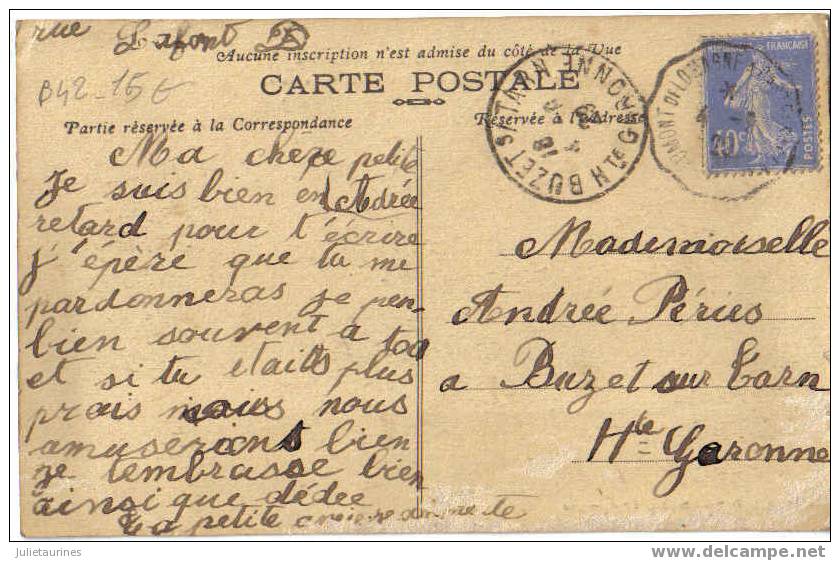 rue Lafont
Aucune inscription n'est admise du côté de la Vue
B42_15€
CARTE POSTALE
Partie réservée à la Correspondance
Réservée à l'Adresse
BUZET S/ TARN
Hte GARONNE
OMONT DE LOMAGNE
FRANÇAISE
40c
POSTES
Ma chère petite
Andrée
Je suis bien en
retard pour t'écrire
j'épère que tu me
pardonneras je pen-
bien souvent a toa
et si tu etaits plus
prais nous
amuserions bien
je tembrasse bien
ainsi que dédée
ta petite
Mademoiselle
Andrée Péries
a Buzet sur Tarn
Hte Garonne
Julietaurines
delcampe.net